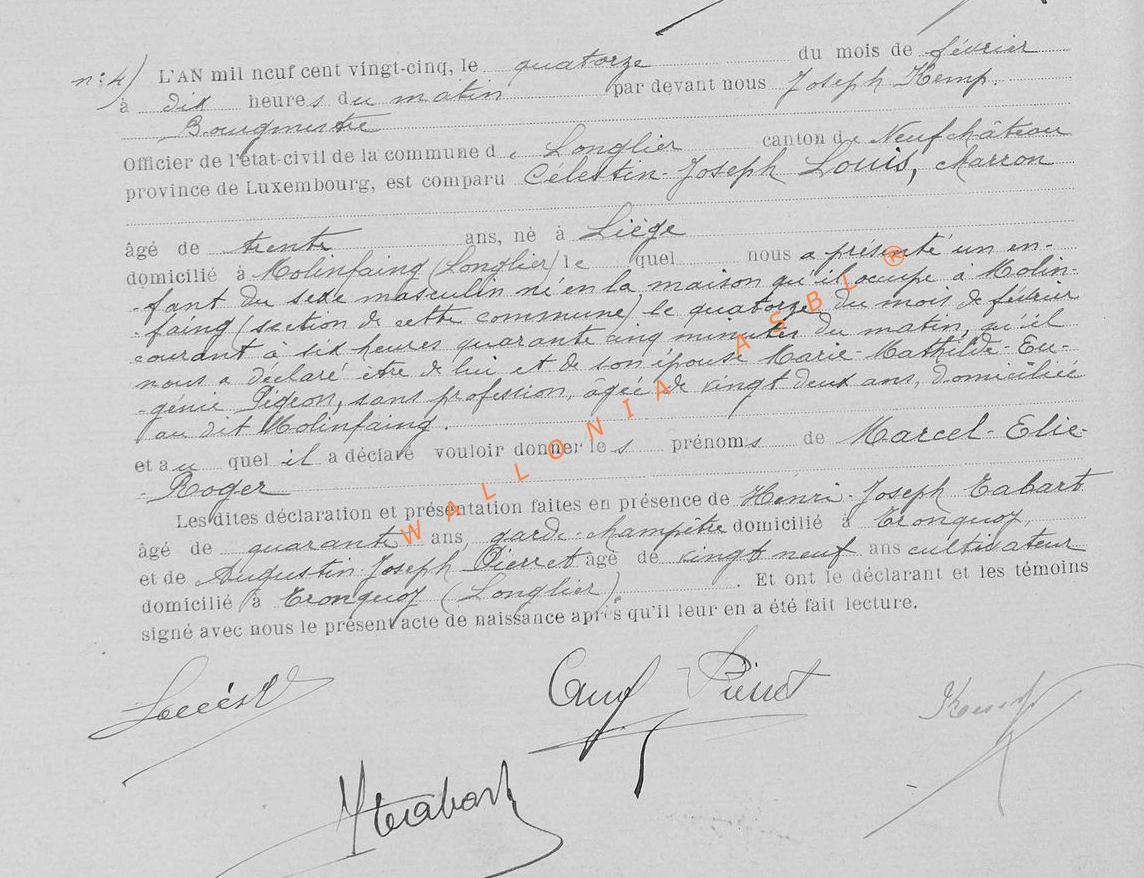 n: 4) L'AN mil neuf cent vingt-cinq, le quatorze du mois de février
à dix heures du matin par devant nous Joseph Kemp.
Bourgmestre
Officier de l'état-civil de la commune de Longlier canton de Neufchâteau
province de Luxembourg, est comparu Célestin-Joseph Louis, charron
âgé de trente ans, né à Liège
domicilié à Molinfaing (Longlier) le quel nous a présenté un en-
-fant du sexe masculin né en la maison qu'il occupe à Molin-
-faing (section de cette commune) le quatorze du mois de février
courant à six heures quarante cinq minutes du matin, qu'il
nous a déclaré être de lui et de son épouse Marie-Mathilde-Eu-
-génie Pigeon, sans profession, âgée de vingt deux ans, domiciliée
au dit Molinfaing.
et au quel il a déclaré vouloir donner les prénoms de Marcel-Elie-
-Roger
Les dites déclaration et présentation faites en présence de Henri-Joseph Tabart
âgé de quarante ans, garde-champêtre domicilié à Tronquoy,
et de Augustin-Joseph Pierret âgé de vingt neuf ans cultivateur
domicilié à Tronquoy (Longlier). Et ont le déclarant et les témoins
signé avec nous le présent acte de naissance après qu'il leur en a été fait lecture.
WALLONIA ASBL ®
Aug Pierret
Kemp
H Tabart